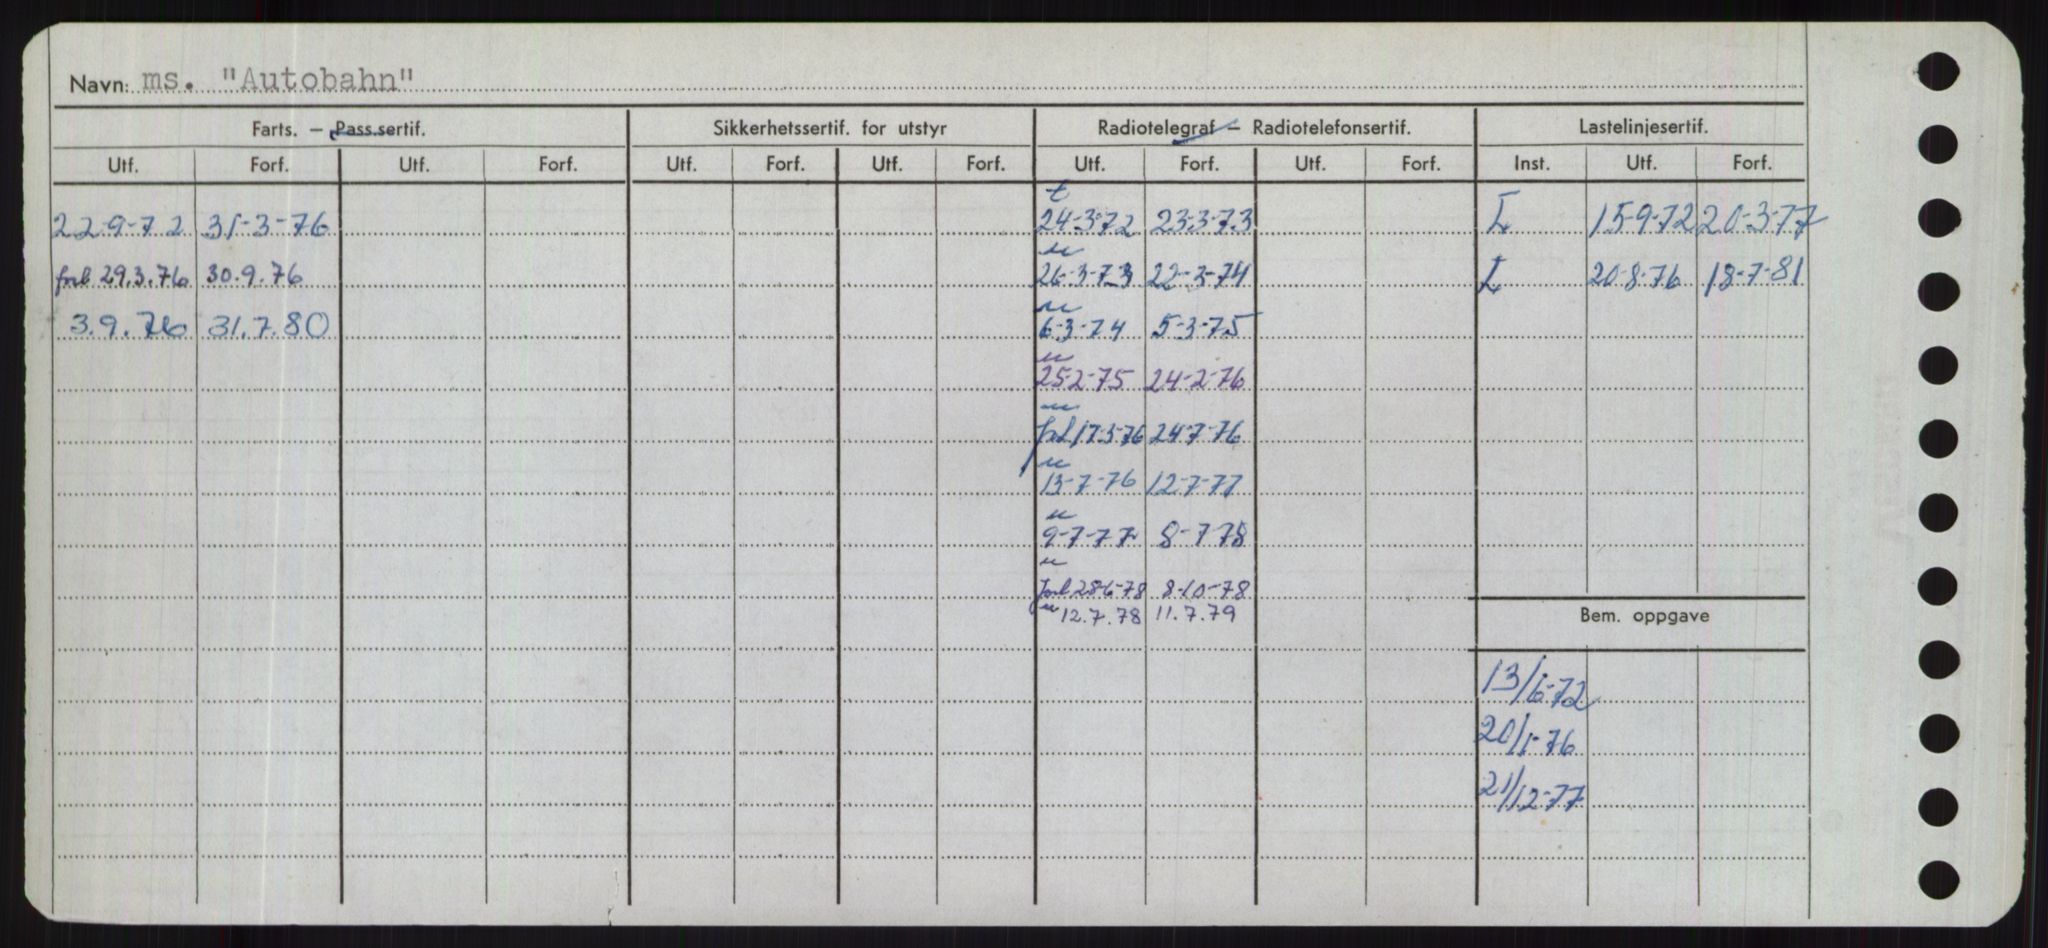 Navn: ms. "Autobahn"
Farts. — Pass.sertif. Sikkerhetssertif. for utstyr Radiotelegraf — Radiotelefonsertif. Lastelinjesertif.
Utf. Forf. Utf. Forf. Utf. Forf. Utf. Forf. Utf. Forf. Utf. Forf. Inst. Utf. Forf.
t
22-9-72 31-3-76 24-3-72 23-3-73 L 15-9-72 20-3-77
"
forl 29.3.76 30.9.76 26-3-73 22-3-74 L 20-8-76 18-7-81
"
3.9.76 31.7.80 6-3-74 5-3-75
"
25-2-75 24-2-76
"
forl 24-7-76
"
13-7-76 12-7-77
"
9-7-77 8-7-78
"
forl 28-6-78 8-10-78
" 12.7.78 11.7.79
Bem. oppgave
13/6-72
20/1-76
21/12-77